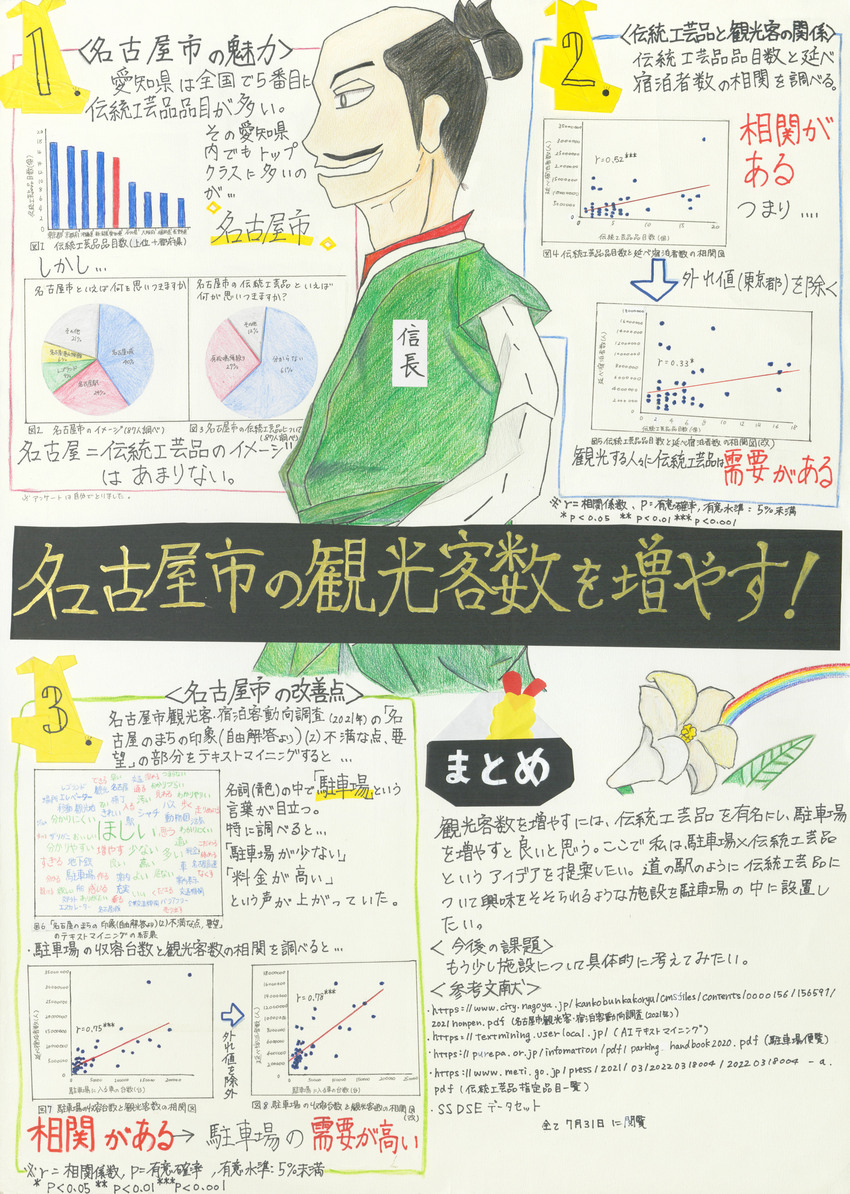 1.
〈名古屋市の魅力〉
愛知県は全国で5番目に
伝統工芸品品目が多い。
その愛知県
内でもトップ
クラスに多いの
が…
名古屋市
図1 伝統工芸品品目数(上位十都府県)
しかし…
名古屋市といえば何を思いつきますか
その他
名古屋城
名古屋駅
図2 名古屋市のイメージ(87人調べ)
名古屋市の伝統工芸品といえば
何が思いつきますか?
その他
分からない
61%
図3 名古屋市の伝統工芸品について
(87人調べ)
名古屋=伝統工芸品のイメージ
はあまりない。
※アンケートは自分でとりました。
信長
2.
〈伝統工芸品と観光客の関係〉
伝統工芸品品目数と延べ
宿泊者数の相関を調べる。
r=0.52***
伝統工芸品品目数(個)
図4 伝統工芸品品目数と延べ宿泊者数の相関図
相関が
ある
つまり….
外れ値(東京都)を除く
r=0.33*
伝統工芸品品目数(個)
図5 伝統工芸品品目数と延べ宿泊者数の相関図(改)
観光する人々に伝統工芸品は需要がある
※r=相関係数、P=有意確率,有意水準:5%未満
*P<0.05 **P<0.01 ***P<0.001
名古屋市の観光客数を増やす!
3.
〈名古屋市の改善点〉
名古屋市観光客・宿泊客動向調査(2021年)の「名
古屋のまちの印象(自由解答より)(2)不満な点、要
望」の部分をテキストマイニングすると…
ほしい
思う
少ない
多い
増やす
分かりにくい
分かりやすい
地下鉄
駐車場
エレベーター
シャチ
バス
図6「名古屋のまちの印象(自由解答より)2)不満な点、要望」
のテキストマイニングの結果
名詞(青色)の中で「駐車場」という
言葉が目立つ。
特に調べると…
「駐車場が少ない」
「料金が高い」
という声が上がっていた。
・駐車場の収容台数と観光客数の相関を調べると…
r=0.75***
駐車場に入る車の台数(台)
図7 駐車場の収容台数と観光客数の相関図
外れ値を除外
r=0.78***
駐車場に入る車の台数(台)
図8 駐車場の収容台数と観光客数の相関図
(改)
相関がある→駐車場の需要が高い
※r=相関係数,P=有意確率,有意水準:5%未満
*P<0.05 **P<0.01 ***P<0.001
まとめ
観光客数を増やすには、伝統工芸品を有名にし、駐車場
を増やすと良いと思う。ここで私は駐車場×伝統工芸品
というアイデアを提案したい。道の駅のように伝統工芸に
ついて興味をそそられるような施設を駐車場の中に設置し
たい。
〈今後の課題〉
もう少し施設について具体的に考えてみたい。
〈参考文献〉
・https://www.city.nagoya.jp/kankobunkakoryu/cmsfiles/contents/0000156/156597/
2021honpen.pdf(名古屋市観光客・宿泊客動向調査(2021年))
・https://textmining.userlocal.jp/(AIテキストマイニング)
・https://purepa.or.jp/infomation/pdf/parking_handbook2020.pdf(駐車場便覧)
・https://www.meti.go.jp/press/2021/03/20220318004/20220318004-a.
pdf(伝統工芸品指定品目一覧)
・SSDSEデータセット
全て7月31日に閲覧